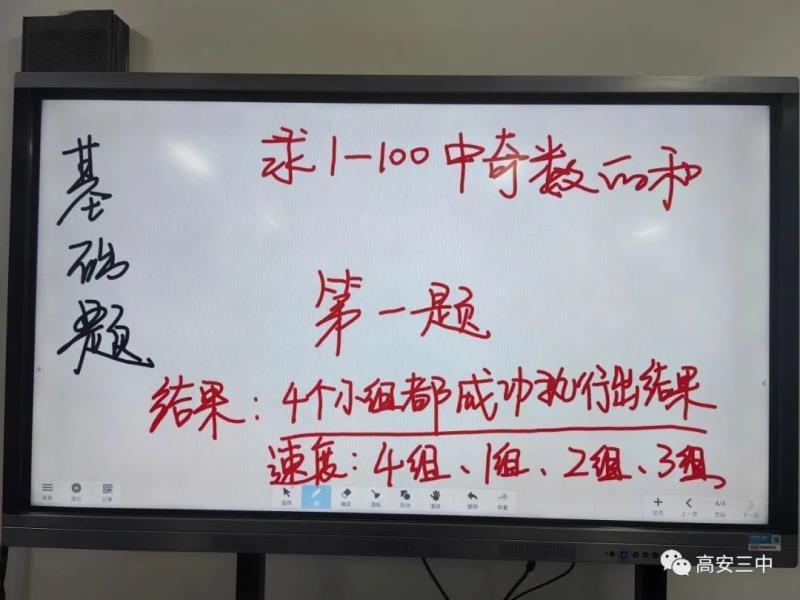 基础题
求1-100中奇数的和
第一题
结果：4个小组都成功执行出结果
速度：4组、1组、2组、3组
4/4
上一页
下一页
高安三中